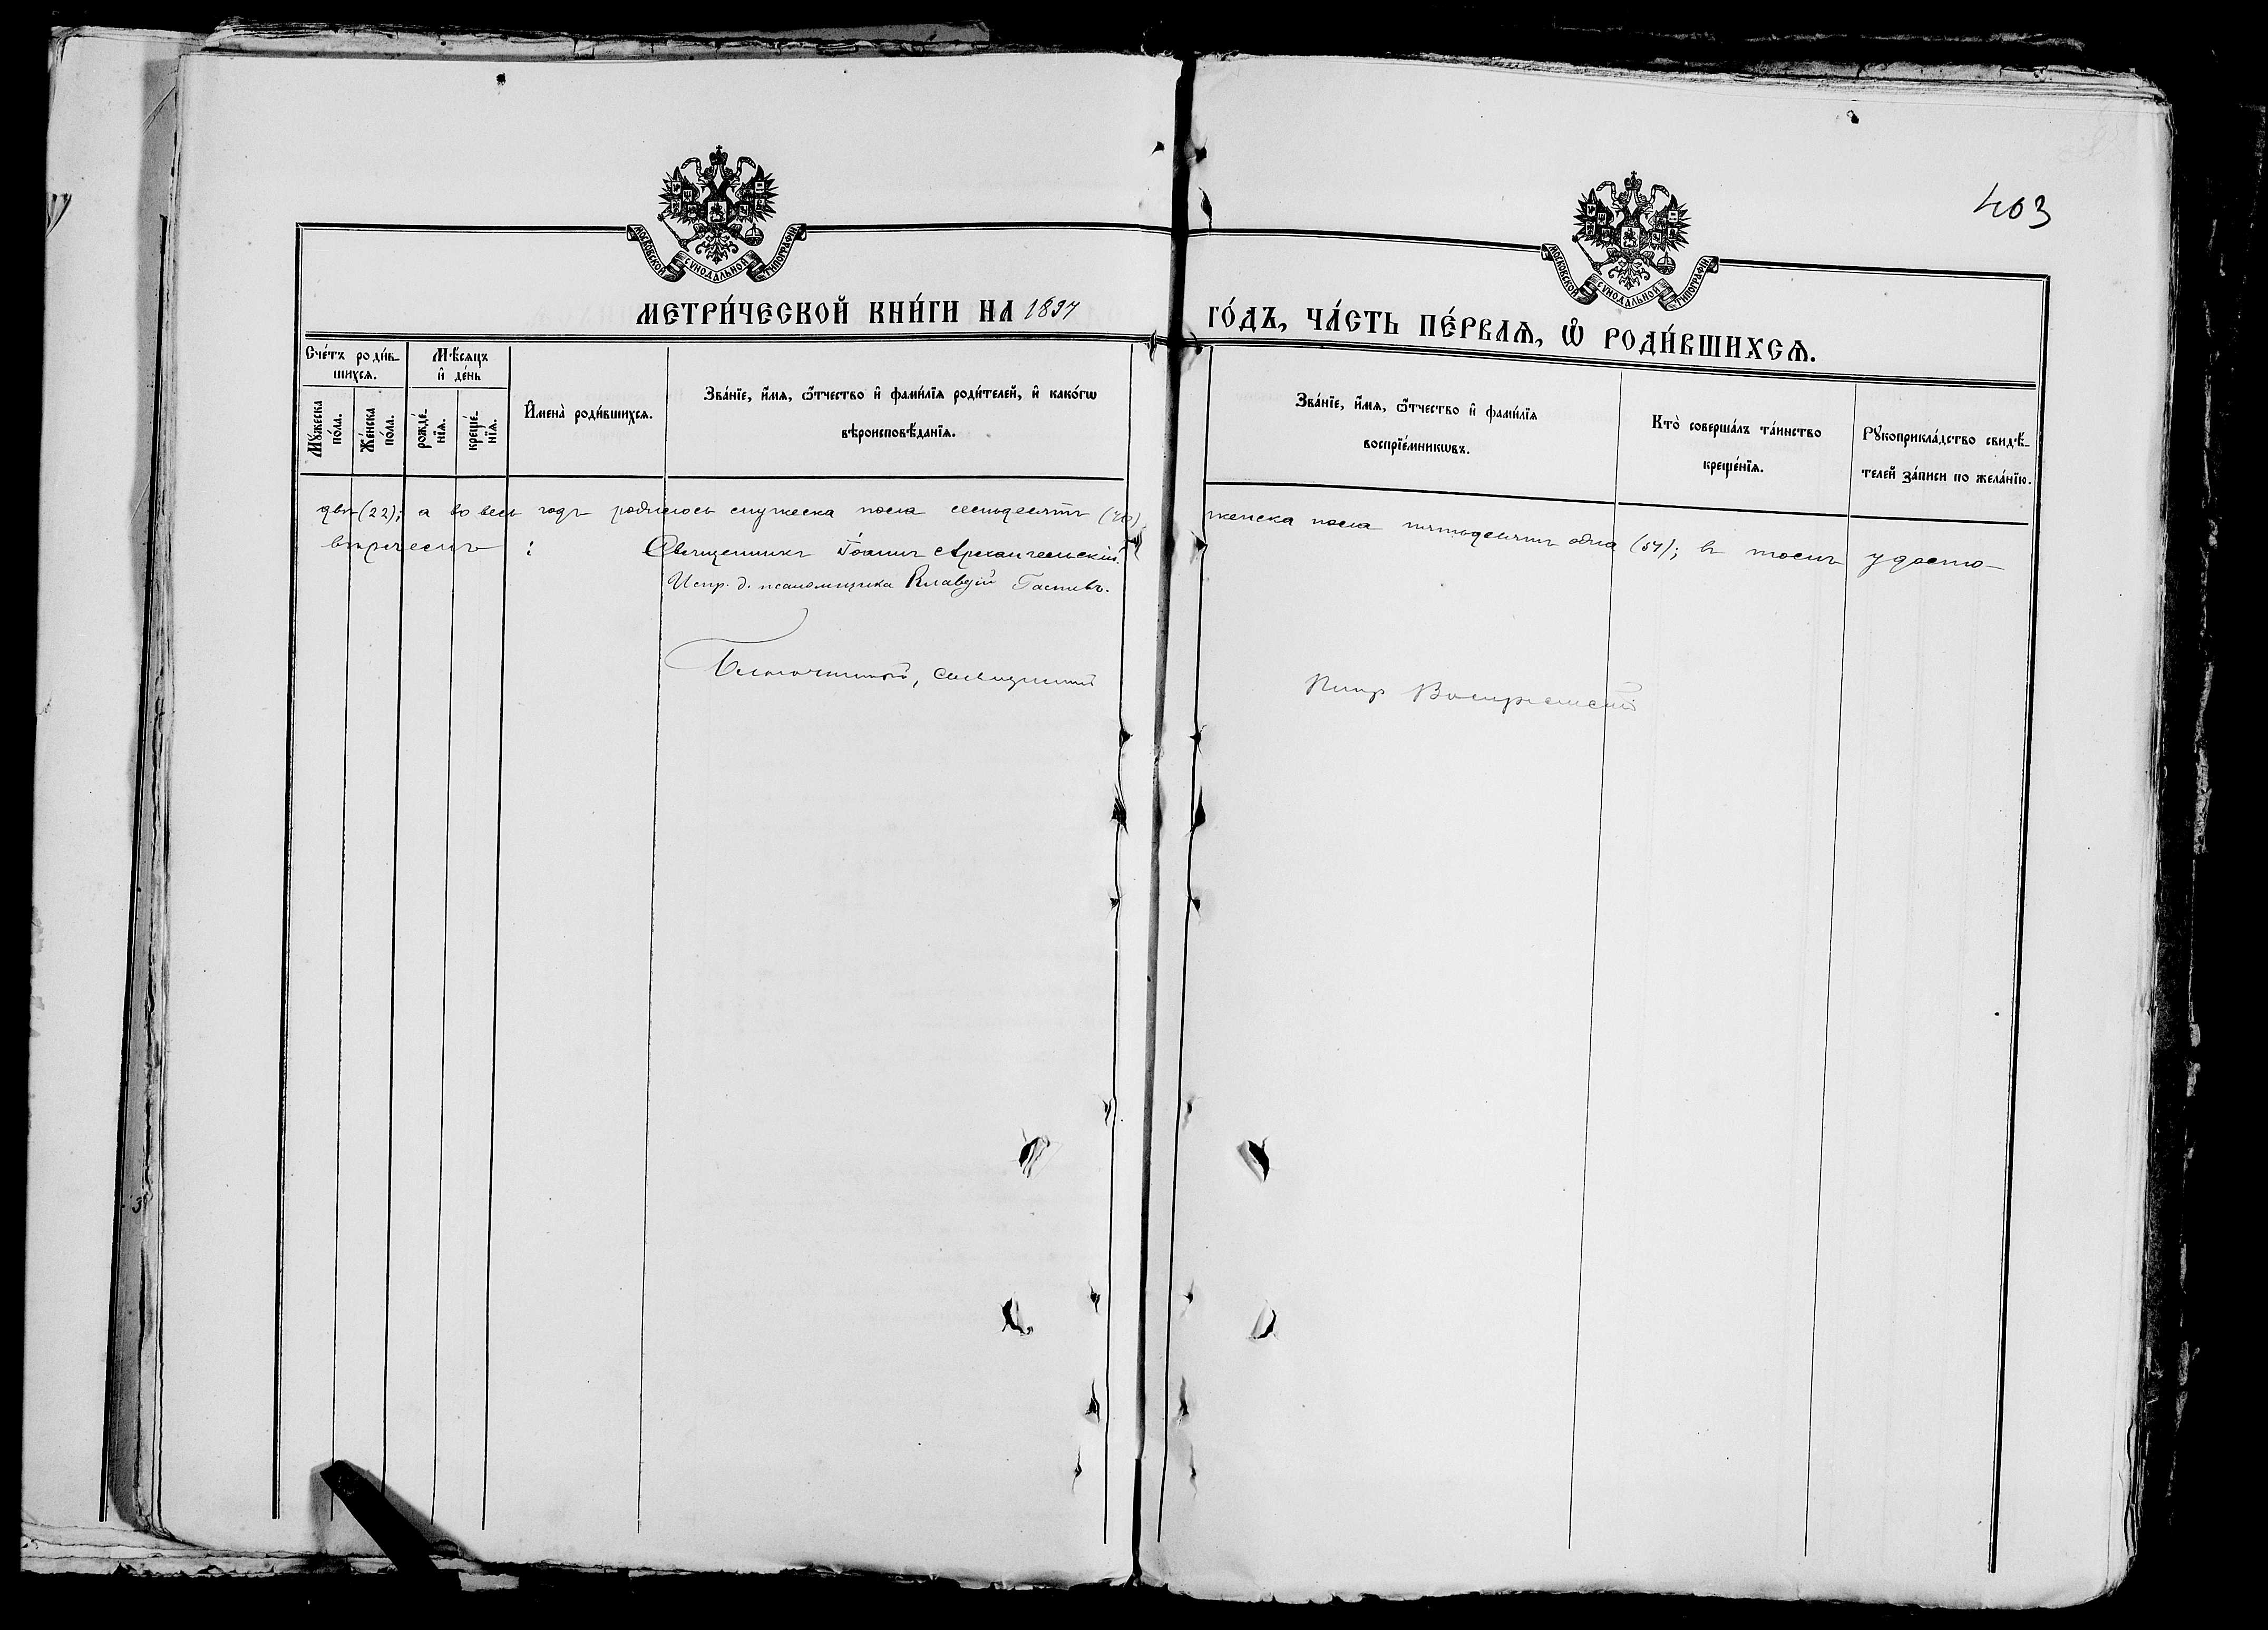 403
МОСКОВСКОЙ СѴНОДАЛЬНОЙ ТИПОГРАФІИ
МОСКОВСКОЙ СѴНОДАЛЬНОЙ ТИПОГРАФІИ
МЕТРИ́ЧЕСКОЙ КНИ́ГИ НА 1897 ГО́ДЪ, ЧА́СТЬ ПЕ́РВАѦ, Ѽ РОДИ́ВШИХСѦ.
Сче́тъ роди́в-
шихсѧ.
Мꙋ́жеска
по́ла.
Же́нска
по́ла.
Мѣ́сѧцъ
и҆ де́нь
рожде́-
нїѧ.
креще́-
нїѧ.
И҆мена̀ роди́вшихсѧ.
Зва́нїе, и҆́мѧ, ѻ҆́тчество и҆ фами́лїѧ роди́телей, и҆ како́гѡ
вѣроисповѣ́данїѧ.
Зва́нїе, и҆́мѧ, ѻ҆́тчество и҆ фами́лїѧ
воспрїе́мникѡвъ.
Кто̀ соверша́лъ та́инство
креще́нїѧ.
Рꙋкоприкла́дство свидѣ́-
телей за́писи по жела́нїю.
двѣ (22); а во весь годъ родилось мужеска пола семьдесятъ (70), женска пола пятьдесятъ одна (51); въ томъ удосто-
вѣряемъ:
Священникъ Іоаннъ Архангельскій.
Испр. д. псаломщика Клавдій
Благочинный, священникъ Петръ Воскресенскій